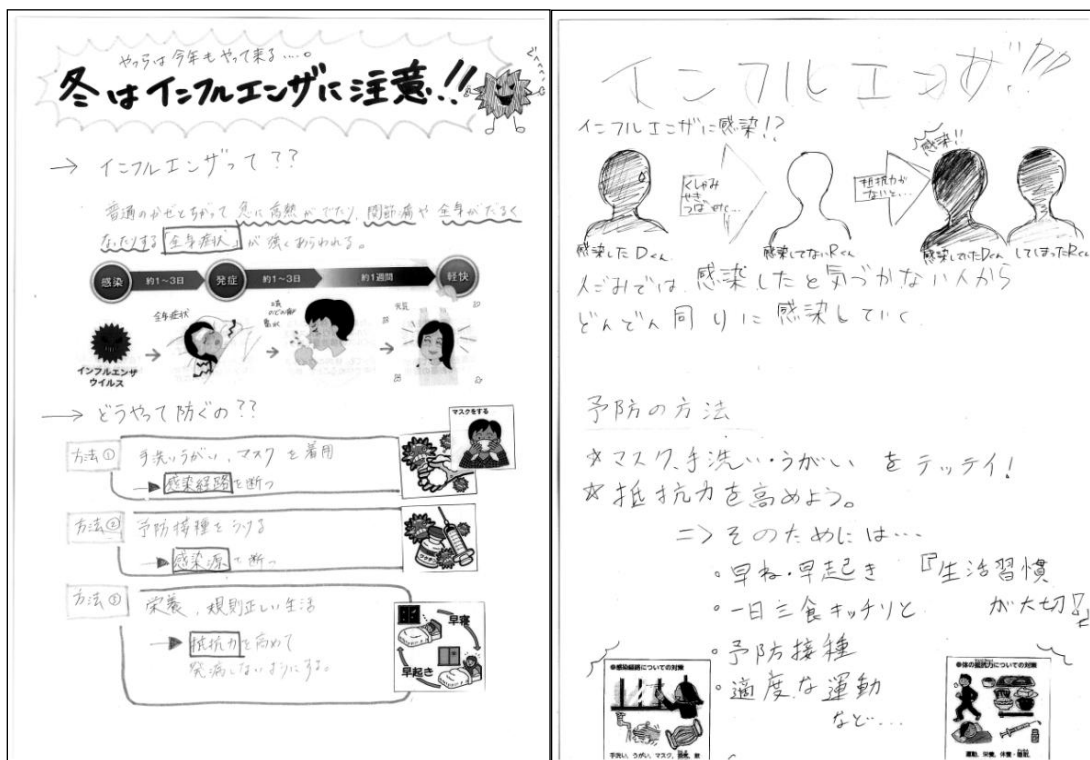 やつらは今年もやって来る....。
冬はインフルエンザに注意!!
→ インフルエンザって??
普通のかぜとちがって急に高熱がでたり、関節痛や全身がだるく
なったりする「全身症状」が強くあらわれる。
感染 約1~3日 発症 約1~3日 約1週間 軽快
全身症状
インフルエンザ
ウイルス
→ どうやって防ぐの??
マスクをする
方法① 手洗いうがい、マスクを着用
→ 感染経路を断つ
方法② 予防接種をうける
→ 感染源を断つ
方法③ 栄養、規則正しい生活
→ 抵抗力を高めて
発病しないようにする。
早寝
早起き
インフルエンザ!!
インフルエンザに感染!?
くしゃみ
せき
抵抗力が
ないと…
感染!!
感染したDくん
感染してないRくん
感染していたDくん
してしまったRくん
人ごみでは、感染したと気づかない人から
どんどん周りに感染していく
予防の方法
☆マスク、手洗い・うがいをテッテイ!
☆抵抗力を高めよう。
⇒そのためには…
・早ね・早起き 『生活習慣
・一日三食キッチリと が大切!!』
・予防接種
・適度な運動
など…
●感染経路についての対策
手洗い、うがい、マスク、
●体の抵抗力についての対策
運動、栄養、休養・睡眠、